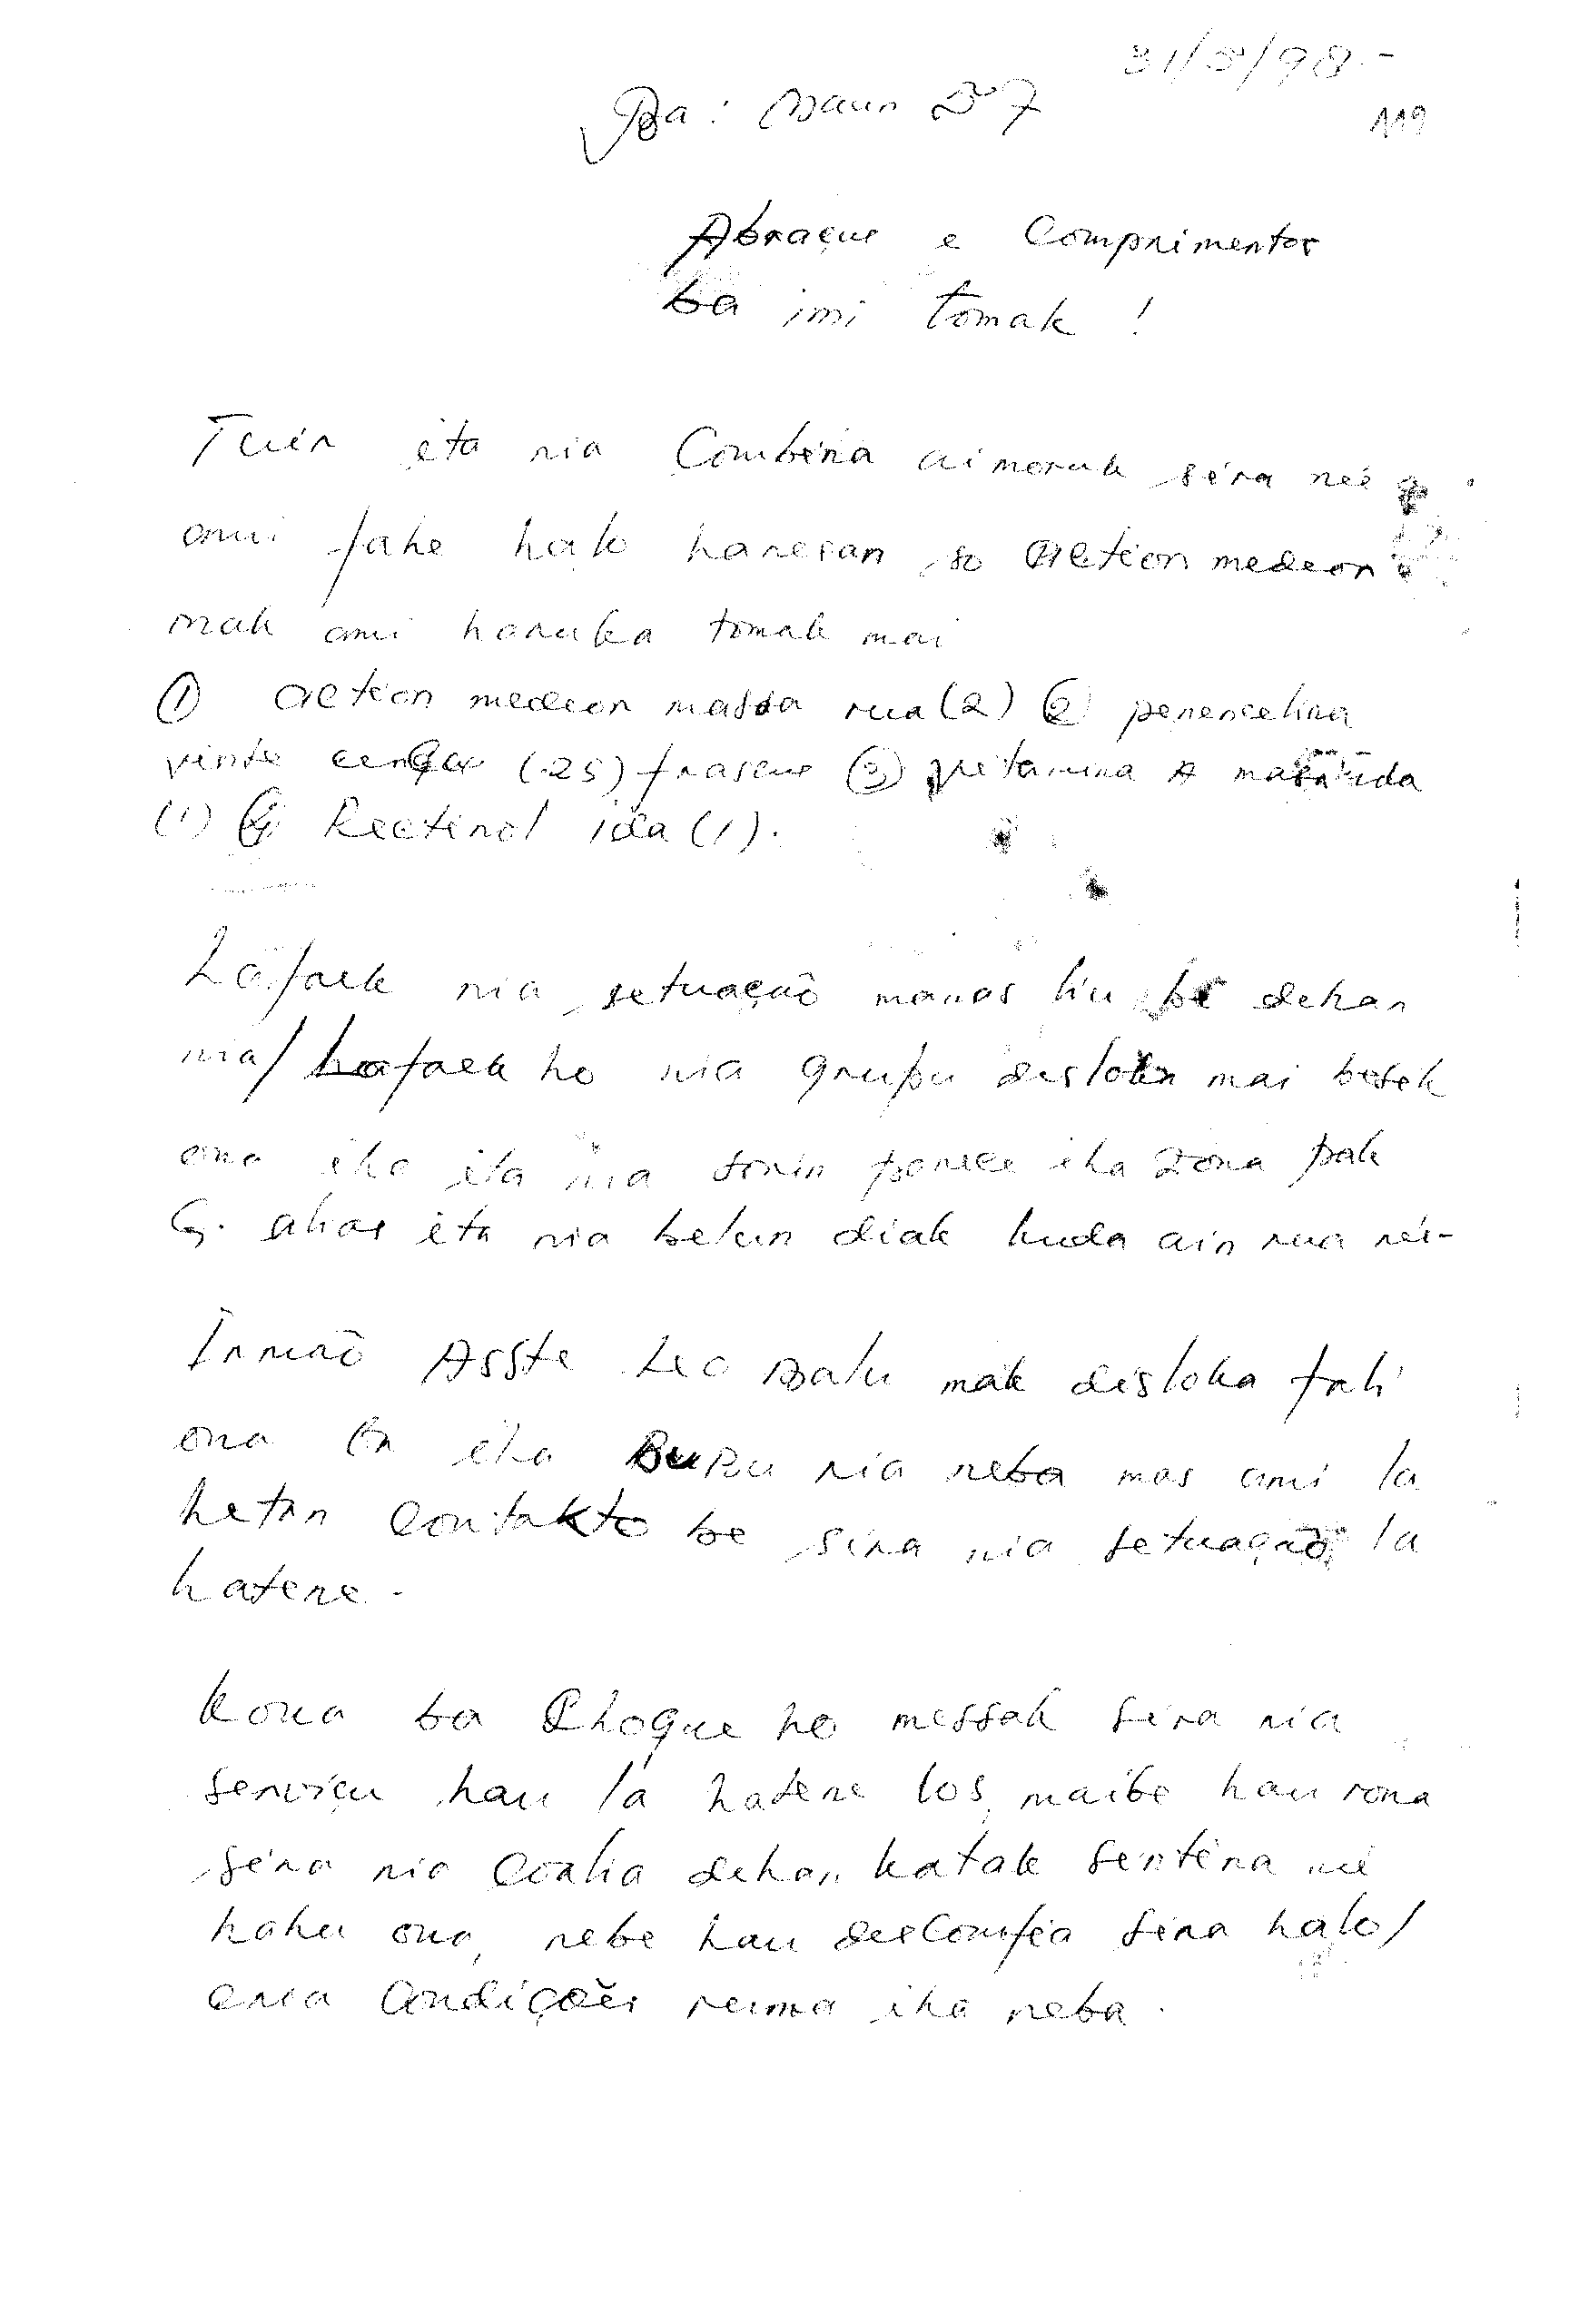 31/5/98.-
Ba: Maun D7
119
Abraçus e Comprimentos
ba imi tomak !
Tuir ita nia Combina aimoruk sira neé
ami fahe halo hanesan so action medeon
mak ami haruka tomak mai
① action medeon massa rua (2) ② penencelina
vinte cinçu (25) frascus ③ vitamina A masa ida
(1) ④ Rectinol ida (1).
Lafaek nia setuaçaô manas liu be dehan
nia/Lafaek ho nia grupu desloka mai besek
ona iha ita nia sorin parece iha Zona pak
G. alias ita nia belun diak kuda ain rua neé-
Irmaõ Asste Leo Balu mak disloka fali
ona ba iha Buru nia neba mas ami la
hetan contakto be sira nia setuaçaõ la
hatene.-
Kona ba Choque ho messak sira nia
serviçu hau la hatene los, maibe hau rona
sira nia coalia dehan katak sentina né
hahu ona, nebe hau descomfia sira halo/
cria Condiçoẽs reuma iha neba.